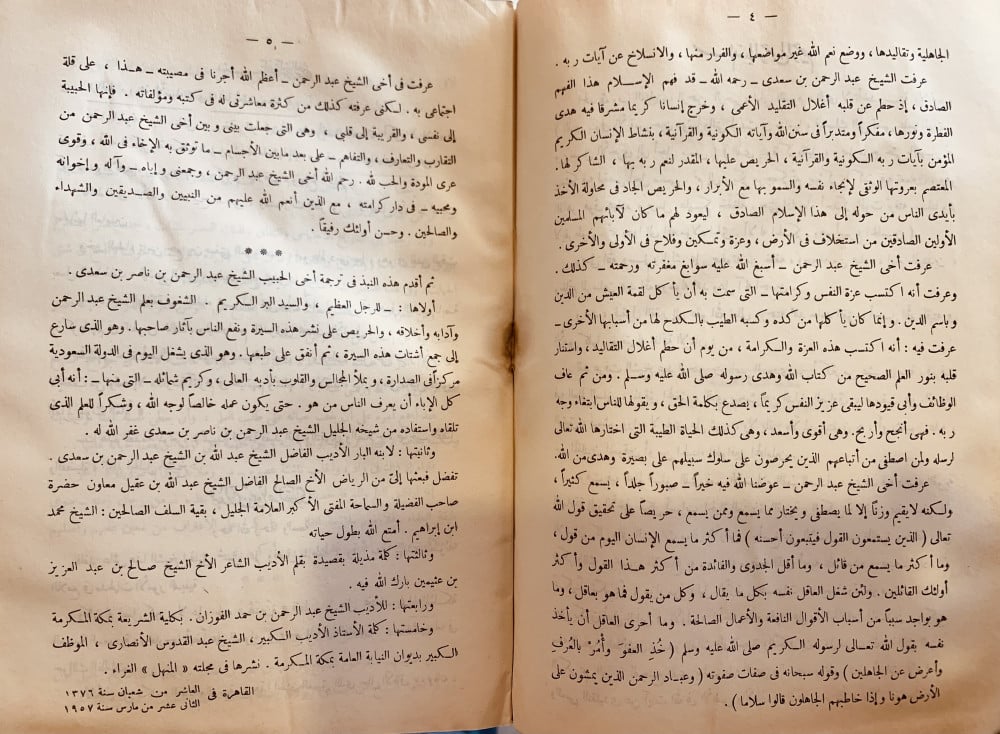 — ٤ —
الجاهلية وتقاليدها ، ووضع نعم الله غير مواضعها ، والفرار منها ، والانسلاخ عن آيات ربه .
عرفت الشيخ عبد الرحمن بن سعدى ـ رحمه الله ـ قد فهم الإسلام هذا الفهم
الصادق ، إذ حطم عن قلبه أغلال التقليد الأعمى ، وخرج إنسانا كريما مشرقا فيه هدى
الفطرة ونورها ، مفكراً ومتدبراً فى سنن الله وآياته الكونية والقرآنية ، بنشاط الإنسان الكريم
المؤمن بآيات ربه الكونية والقرآنية ، الحريص عليها ، المقدر لنعم ربه بها ، الشاكر لها .
المعتصم بعروتها الوثقى لإنجاء نفسه والسمو بها مع الأبرار ، والحريص الجاد فى محاولة الأخذ
بأيدى الناس من حوله إلى هذا الإسلام الصادق ، ليعود لهم ما كان لآبائهم المسلمين
الأولين الصادقين من استخلاف فى الأرض ، وعزة وتمكين وفلاح فى الأولى والأخرى .
عرفت أخى الشيخ عبد الرحمن ـ أسبغ الله عليه سوابغ مغفرته ورحمته ـ كذلك .
وعرفت أنه اكتسب عزة النفس وكرامتها ـ التى سمت به أن يأكل لقمة العيش من الدين
وباسم الدين . وإنما كان يأكلها من كده وكسبه الطيب بالكدح لها من أسبابها الأخرى ـ
عرفت فيه : أنه اكتسب هذه العزة والكرامة ، من يوم أن حطم أغلال التقاليد ، واستنار
قلبه بنور العلم الصحيح من كتاب الله وهدى رسوله صلى الله عليه وسلم ، ومن ثم عاف
الوظائف وأبى قيودها ليبقى عزيز النفس كريماً ، يصدع بكلمة الحق ، ويقولها للناس ابتغاء وجه
ربه . فهى أنجح وأربح . وهى أقوى وأسعد ، وهى كذلك الحياة الطيبة التى اختارها الله تعالى
لرسله ولمن اصطفى من أتباعهم الذين يحرصون على سلوك سبيلهم على بصيرة وهدى من الله .
عرفت أخى الشيخ عبد الرحمن ـ عوضنا الله فيه خيراً ـ صبوراً جلداً ، يسمع كثيراً ،
ولكنه لايقيم وزناً إلا لما يصطفى ويختار مما يسمع وممن يسمع ، حريصاً على تحقيق قول الله
تعالى ( الذين يستمعون القول فيتبعون أحسنه ) فما أكثر ما يسمع الإنسان اليوم من قول ،
وما أكثر ما يسمع من قائل ، وما أقل الجدوى والفائدة من أكثر هذا القول وأكثر
أولئك القائلين . ولئن شغل العاقل نفسه بكل ما يقال ، وكل من يقول فما هو بعاقل ، وما
هو بواجد سبباً من أسباب الأقوال النافعة والأعمال الصالحة . وما أحرى العاقل أن يأخذ
نفسه بقول الله تعالى لرسوله الكريم صلى الله عليه وسلم ( خُذِ العفوَ وأْمُرْ بالعُرفِ
وأعرض عن الجاهلين ) وقوله سبحانه فى صفات صفوته ( وعباد الرحمن الذين يمشون على
الأرض هونا وإذا خاطبهم الجاهلون قالوا سلاما ) .
— ٥ —
عرفت فى أخى الشيخ عبد الرحمن ـ أعظم الله أجرنا فى مصيبته ـ هذا ، على قلة
اجتماعى به . لكنى عرفته كذلك من كثرة معاشرتى له فى كتبه ومؤلفاته . فإنها الحبيبة
إلى نفسى ، والقريبة إلى قلبى ، وهى التى جعلت بينى وبين أخى الشيخ عبد الرحمن من
التقارب والتعارف ، والتفاهم ـ على بعد مابين الأجسام ـ ما توثق به الإخاء فى الله ، وقوى
عرى المودة والحب لله . رحم الله أخى الشيخ عبد الرحمن ، وجمعنى وإياه ـ وآله وإخوانه
ومحبيه ـ فى دار كرامته ، مع الذين أنعم الله عليهم من النبيين والصديقين والشهداء
والصالحين . وحسن أولئك رفيقاً .
* * *
ثم أقدم هذه النبذ فى ترجمة أخى الحبيب الشيخ عبد الرحمن بن ناصر بن سعدى .
أولاها : ـ للرجل العظيم ، والسيد البر الكريم . الشغوف بعلم الشيخ عبد الرحمن
وآدابه وأخلاقه ، والحريص على نشر هذه السيرة ونفع الناس بآثار صاحبها . وهو الذى سارع
إلى جمع أشتات هذه السيرة ، ثم أنفق على طبعها . وهو الذى يشغل اليوم فى الدولة السعودية
مركزاً فى الصدارة ، ويملأ المجالس والقلوب بأدبه العالى ، وكريم شمائله ـ التى منها ـ : أنه أبى
كل الإباء أن يعرف الناس من هو . حتى يكون عمله خالصاً لوجه الله ، وشكراً للعلم الذى
تلقاه واستفاده من شيخه الجليل الشيخ عبد الرحمن بن ناصر بن سعدى غفر الله له .
وثانيتها : لابنه البار الأديب الفاضل الشيخ عبد الله بن الشيخ عبد الرحمن بن سعدى .
تفضل فبعثها إلىّ من الرياض الأخ الصالح الفاضل الشيخ عبد الله بن عقيل معاون حضرة
صاحب الفضيلة والسماحة المفتى الأكبر العلامة الجليل ، بقية السلف الصالحين : الشيخ محمد
ابن إبراهيم . أمتع الله بطول حياته
وثالثتها : كلمة مذيلة بقصيدة بقلم الأديب الشاعر الأخ الشيخ صالح بن عبد العزيز
بن عثيمين بارك الله فيه .
ورابعتها : للأديب الشيخ عبد الرحمن بن حمد الفوزان . بكلية الشريعة بمكة المكرمة
وخامستها : كلمة الأستاذ الأديب الكبير ، الشيخ عبد القدوس الأنصارى ، الموظف
الكبير بديوان النيابة العامة بمكة المكرمة . نشرها فى مجلته « المنهل » الغراء .
القاهرة فى العاشر من شعبان سنة ١٣٧٦
الثانى عشر من مارس سنة ١٩٥٧